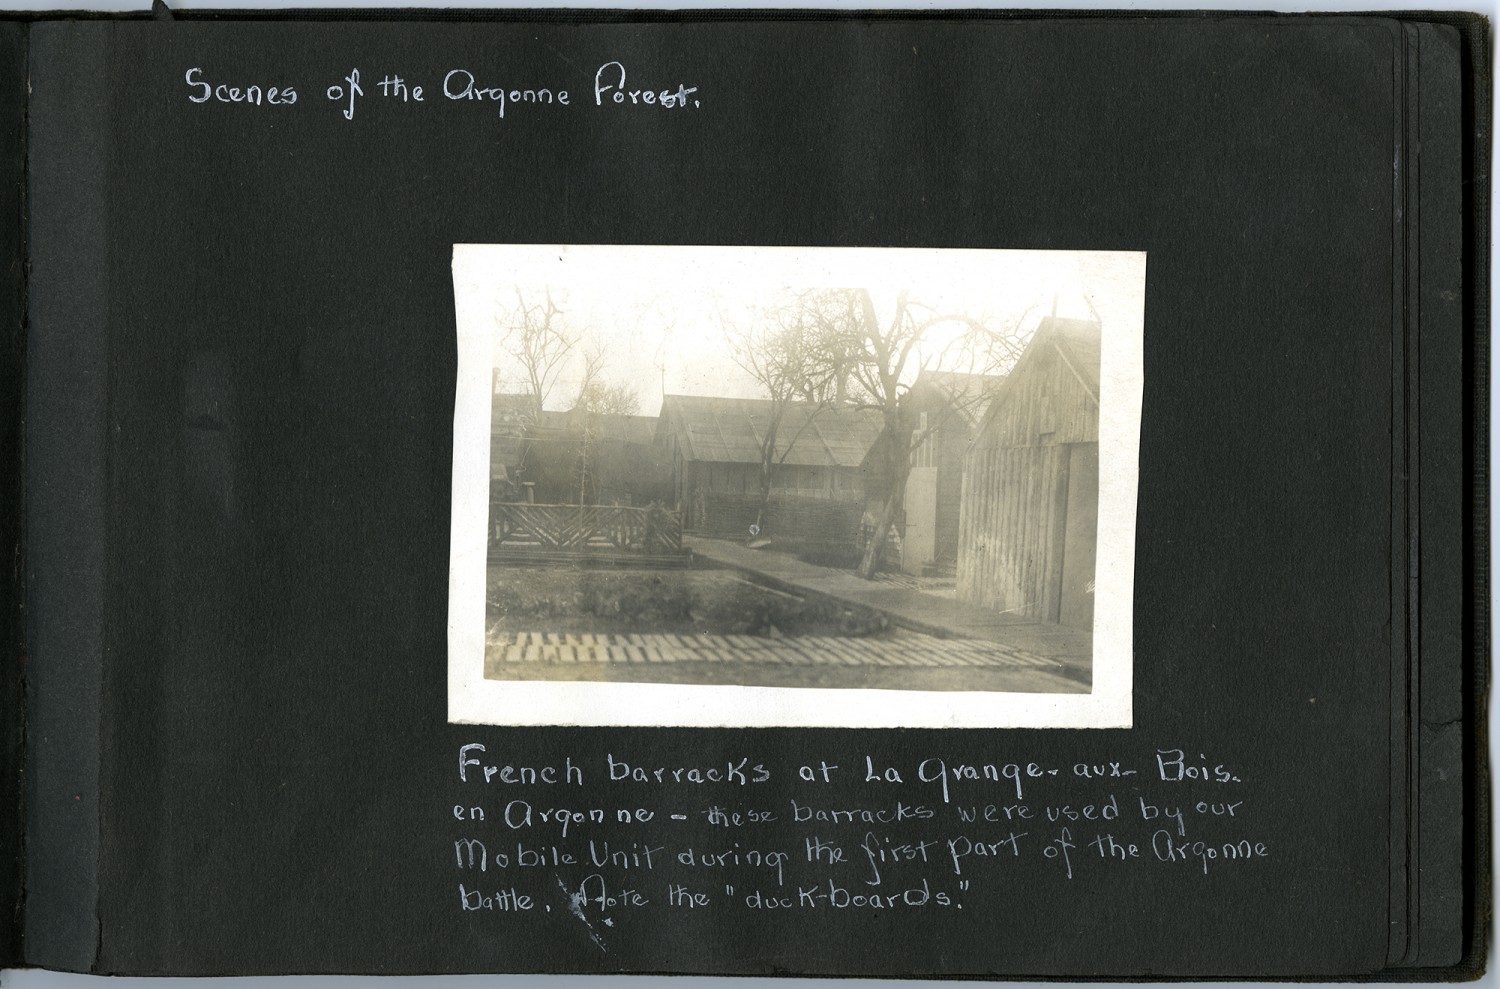 Scenes of the Argonne Forest.
French barracks at La Grange-aux-Bois.
en Argonne - these barracks were used by our
Mobile Unit during the first part of the Argonne
battle. Note the "duck-boards."